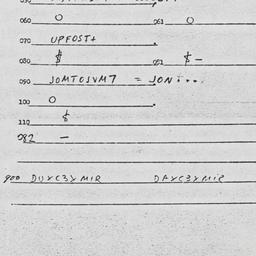 060 O 061 O
070 UPFOST+
080 $ 081 $ -
090 JOMTOJVMT = JON....
100 O
110 $
082 -
900 DUYC3YMIR DAYC3YMIR